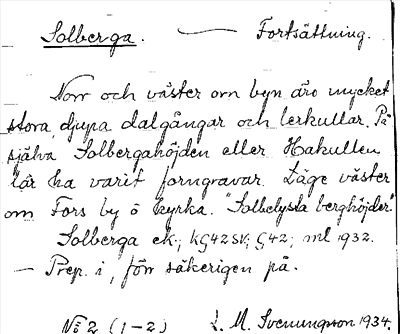 Solberga. — Fortsättning.
Norr och väster om byn äro mycket
stora, djupa dalgångar och lerkullar. På
själva Solbergahöjden eller Hakullen
lär ha varit forngravar. Läge väster
om Fors by o kyrka. "Solbelysta berghöjder".
Solberga ek.; KG42SV; G42; ml 1932.
— Prep. i, förr säkerigen på.
No 2 (1-2) L. M. Svenungson 1934.